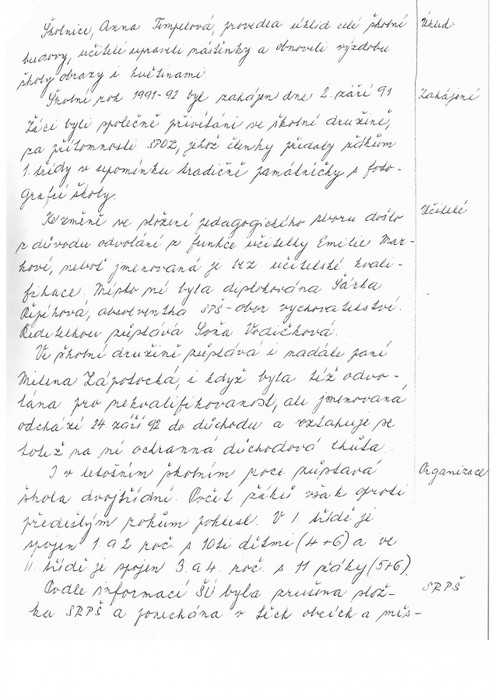 Školnice, Anna Timpelová, provedla úklid celé školní
budovy, učitelé upravili nástěnky a obnovili výzdobu
školy obrazy i květinami.
Úklid
Školní rok 1991-92 byl zahájen dne 2. září 91
Zahájení
Žáci byli společně přivítáni ve školní družině,
za přítomnosti SPOZ, jehož členky předaly žákům
1. třídy v upomínku tradičně památníčky s foto-
grafií školy.
Ke změně ve složení pedagogického sboru došlo
Učitelé
z důvodu odvolání z funkce učitelky Emilie Mar-
kové, neboť jmenovaná je bez učitelské kvali-
fikace. Místo ní byla diplotována Šárka
Řípíková, absolventka SPŠ-obor vychovatelství.
Ředitelkou zůstává Soňa Vodičková.
Ve školní družině zůstává i nadále paní
Milena Zápotocká, i když byla též odvo-
lána pro nekvalifikovanost, ale jmenovaná
odchází 24 září 92 do důchodu a vztahuje se
totiž na ní ochranná důchodová lhůta.
I v letošním školním roce zůstává
Organizace
škola dvojtřídní. Počet žáků však oproti
předešlým rokům poklesl. V I. třídě je
spojen 1. a 2 roč. s 10ti dětmi (4+6) a ve
II. třídě je spojen 3. a 4. roč. s 11 žáky (5+6).
Podle informací ŠÚ byla zrušena slož-
SRPŠ
ka SRPŠ a ponechána v těch obcích a měs-